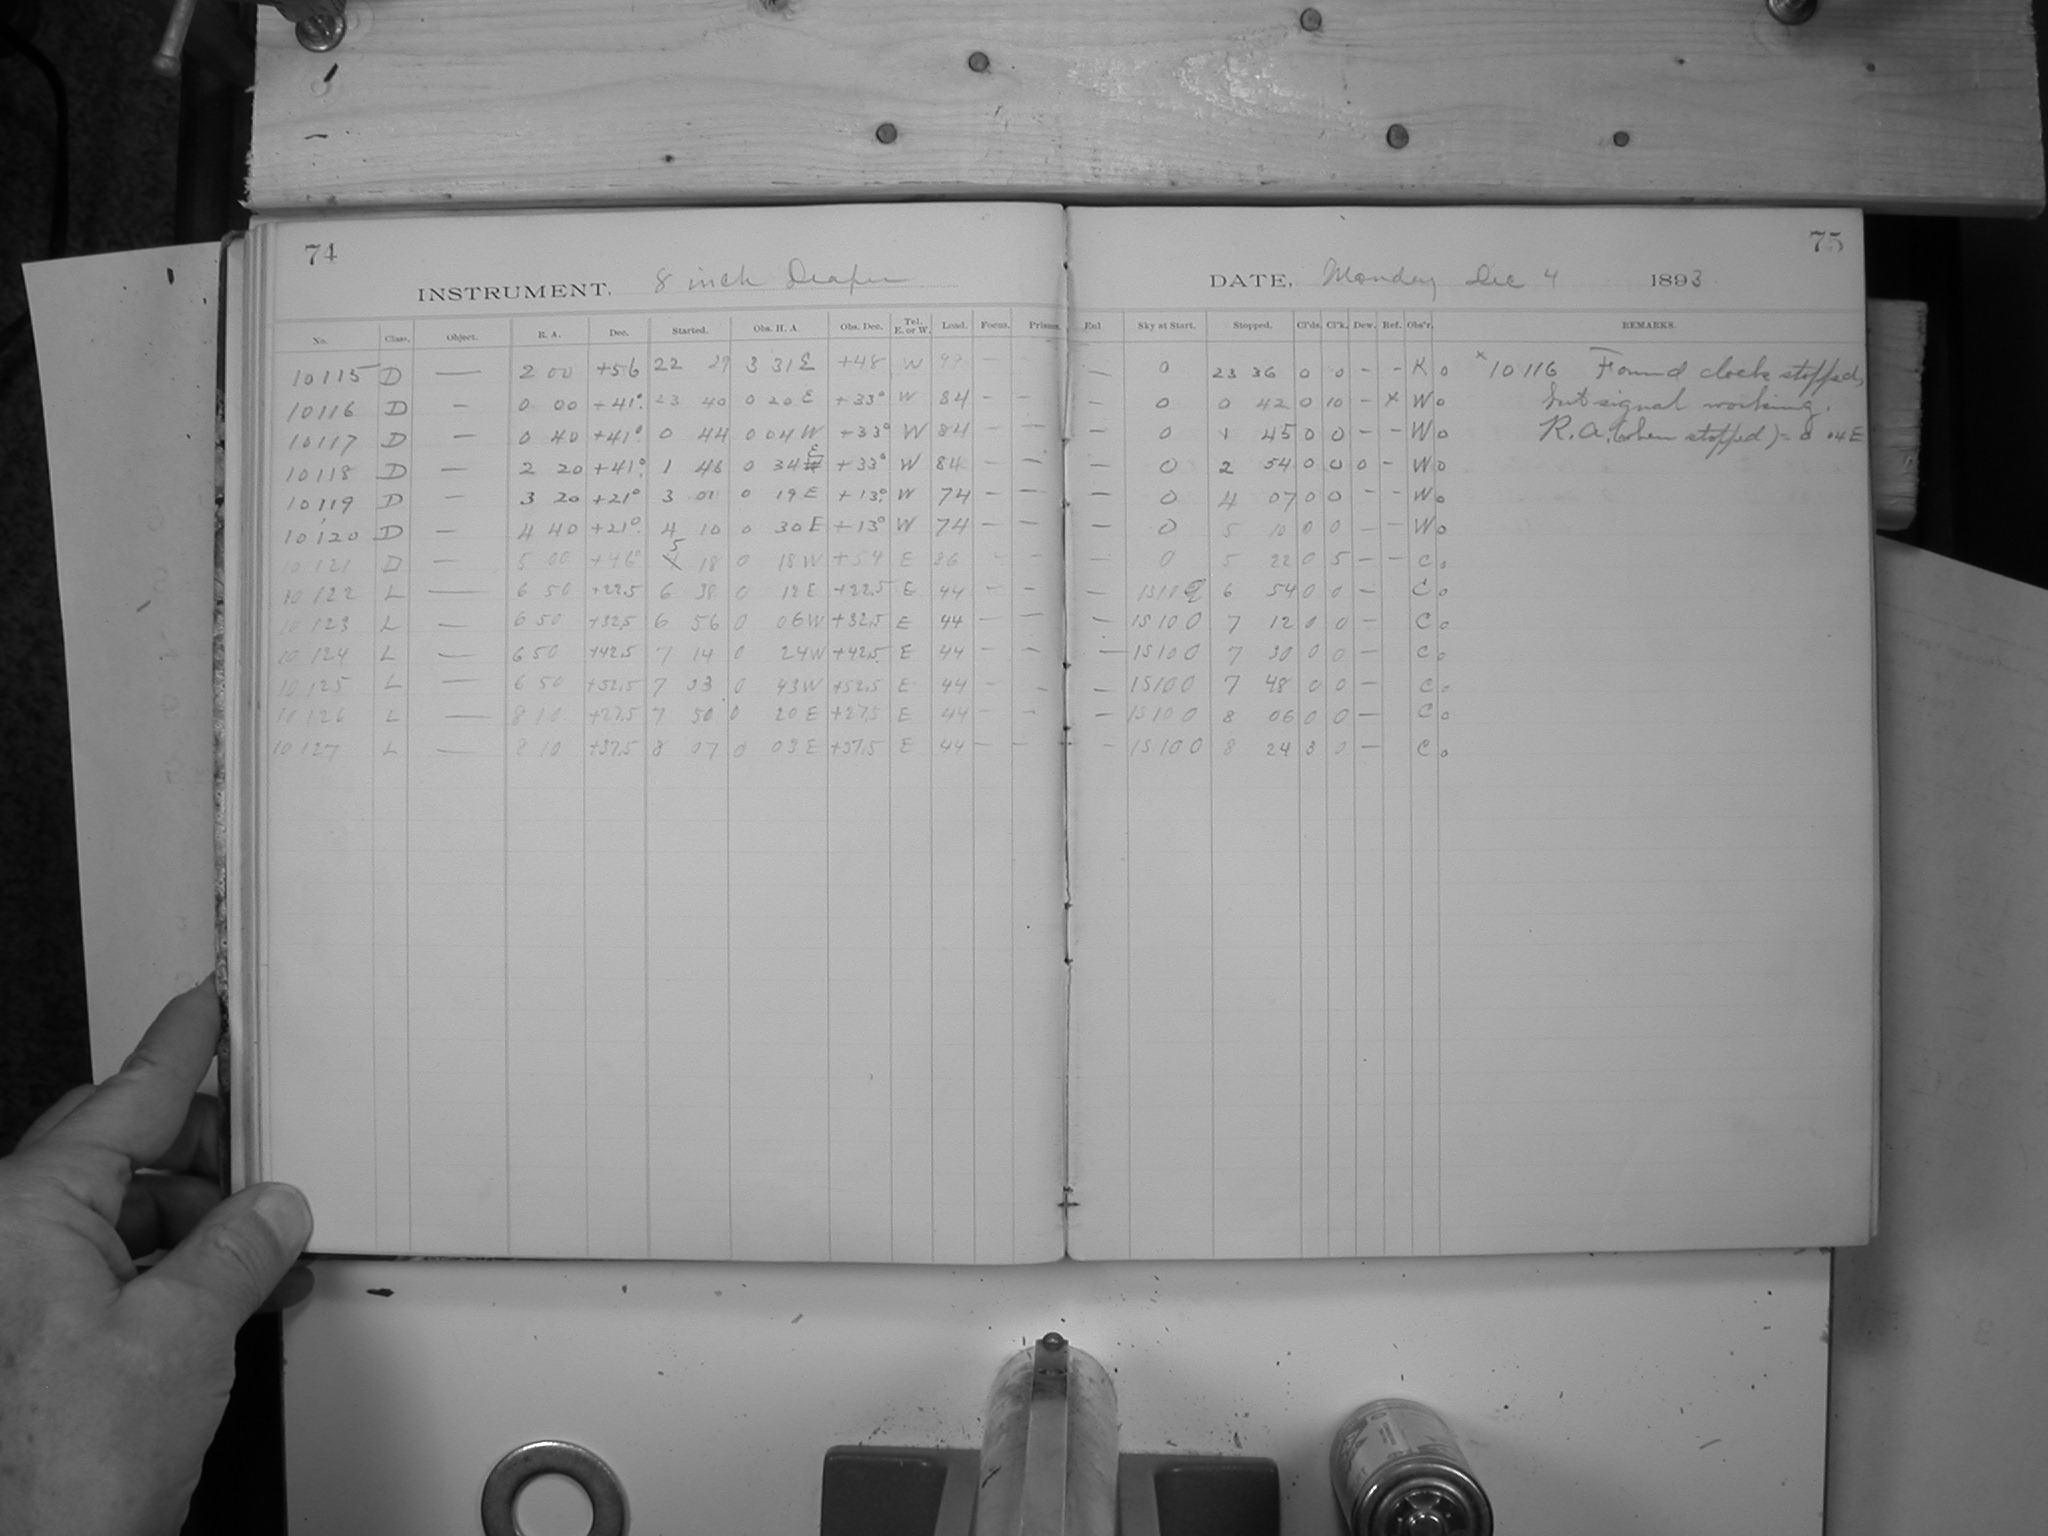 74
INSTRUMENT. 8 inch Draper
No. Class. Object. R. A. Dec. Started. Obs. H. A. Obs. Dec. Tel. E. or W. Load. Focus. Prisms.
10115 D — 2 00 +56 22 29 3 31 E +48 W 92 —
10116 D — 0 00 +41° 23 40 0 20 E +33° W 84 — —
10117 D — 0 40 +41° 0 44 0 04 W +33° W 84 — —
10118 D — 2 20 +41° 1 46 0 34 E +33° W 84 — —
10119 D — 3 20 +21° 3 01 0 19 E +13° W 74 — —
10120 D — 4 40 +21° 4 10 0 30 E +13° W 74 — —
10121 D — 5 00 +46° 5 18 0 18 W +54 E 86 — —
10122 L — 6 50 +22.5 6 38 0 12 E +22.5 E 44 — —
10123 L — 6 50 +32.5 6 56 0 06 W +32.5 E 44 — —
10124 L — 6 50 +42.5 7 14 0 24 W +42.5 E 44 — —
10125 L — 6 50 +52.5 7 33 0 43 W +52.5 E 44 — —
10126 L — 8 10 +27.5 7 50 0 20 E +27.5 E 44 — —
10127 L — 8 10 +37.5 8 07 0 03 E +37.5 E 44 — —
75
DATE, Monday Dec 4 1893
Enl Sky at Start. Stopped. Cl'ds. Cl'k. Dew. Ref. Obs'r. REMARKS.
— 0 23 36 0 0 - - K o × 10116 Found clock stopped,
— 0 0 42 0 10 - × W o but signal working.
— 0 1 45 0 0 - - W o R.A. (when stopped) = 0 04 E
— 0 2 54 0 0 0 - W o
— 0 4 07 0 0 - - W o
— 0 5 10 0 0 - - W o
— 0 5 22 0 5 - - C o
— 15 10 0 6 54 0 0 - C o
— 15 10 0 7 12 0 0 - C o
— 15 10 0 7 30 0 0 - C o
— 15 10 0 7 48 0 0 - C o
— 15 10 0 8 06 0 0 - C o
— 15 10 0 8 24 3 0 - C o